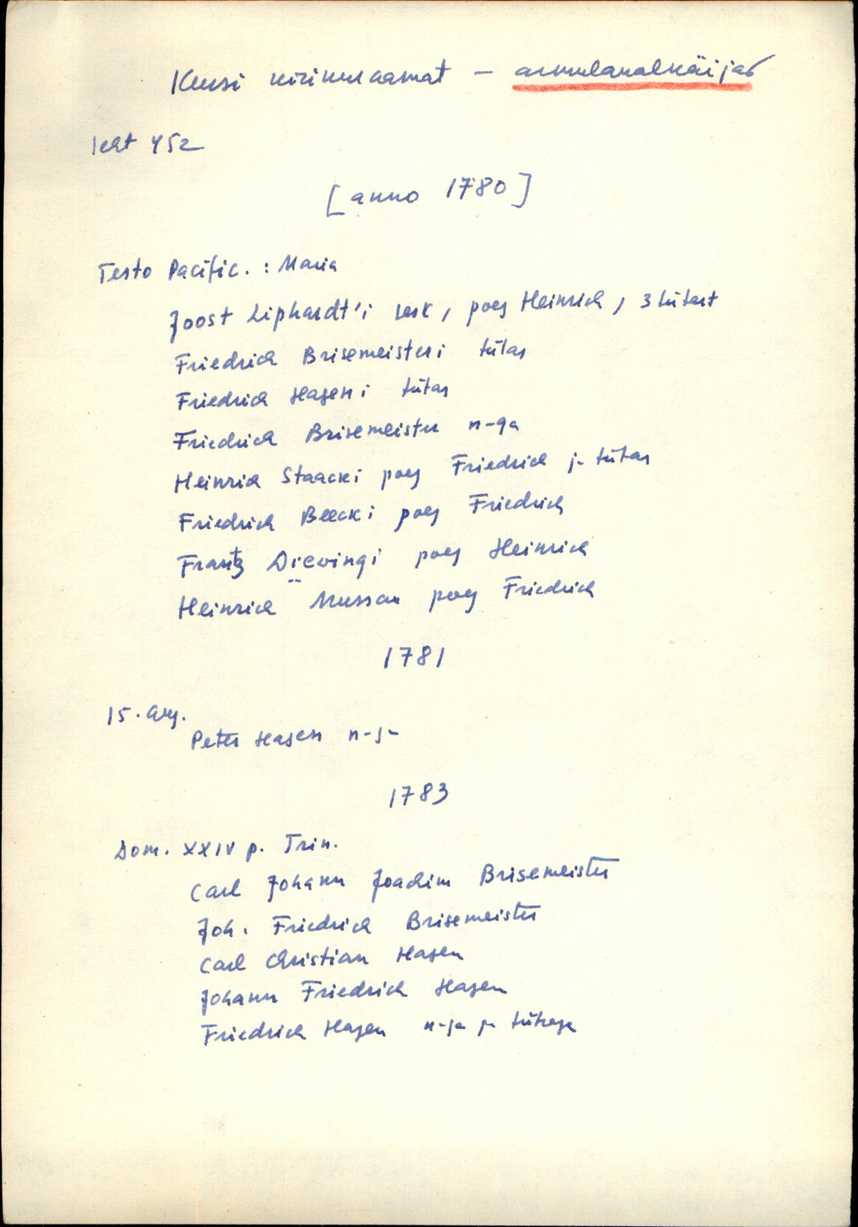 Kursi kirikuraamat – armulaualkäijad
leht 452
[anno 1780]
Testo Pacific. : Maria
Joost Liphardt'i lesk, poeg Heinrich, 3 tütart
Friedrich Brisemeisteri tütar
Friedrich Hageni tütar
Friedrich Brisemeister n-ga
Heinrich Staacki poeg Friedrich j- tütar
Friedrich Beecki poeg Friedrich
Frantz Diewingi poeg Heinrich
Heinrich Mussau poeg Friedrich
1781
15. Aug.
Peter Hagen n-j-
1783
Dom. XXIV p. Trin.
Carl Johann Joachim Brisemeister
Joh. Friedrich Brisemeister
Carl Christian Hagen
Johann Friedrich Hagen
Friedrich Hagen n-ja j- tütrega